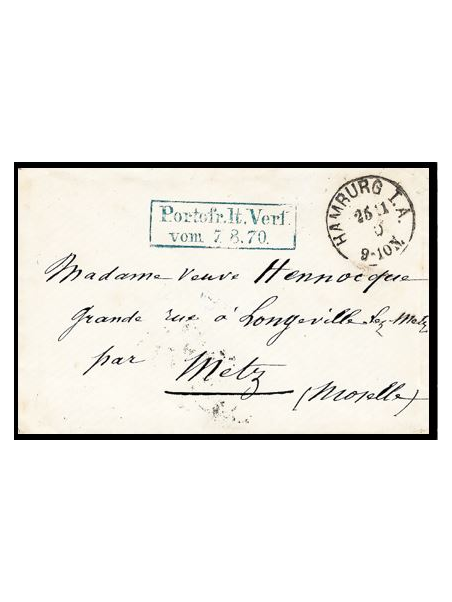 Portofr. lt. Verf.
vom 7. 8. 70.
HAMBURG I.A.
26 11
9-10N.
Madame Veuve Hennocque
Grande rue à Longeville Lez-Metz
par Metz
(Moselle)